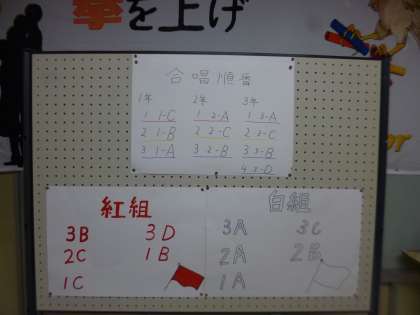 拳を上げ
合唱順番
1年 2年 3年
1 1-C 1 2-A 1 3-A
2 1-B 2 2-C 2 3-C
3 1-A 3 2-B 3 3-B
4 3-D
紅組 白組
3B 3D 3A 3C
2C 1B 2A 2B
1C 1A